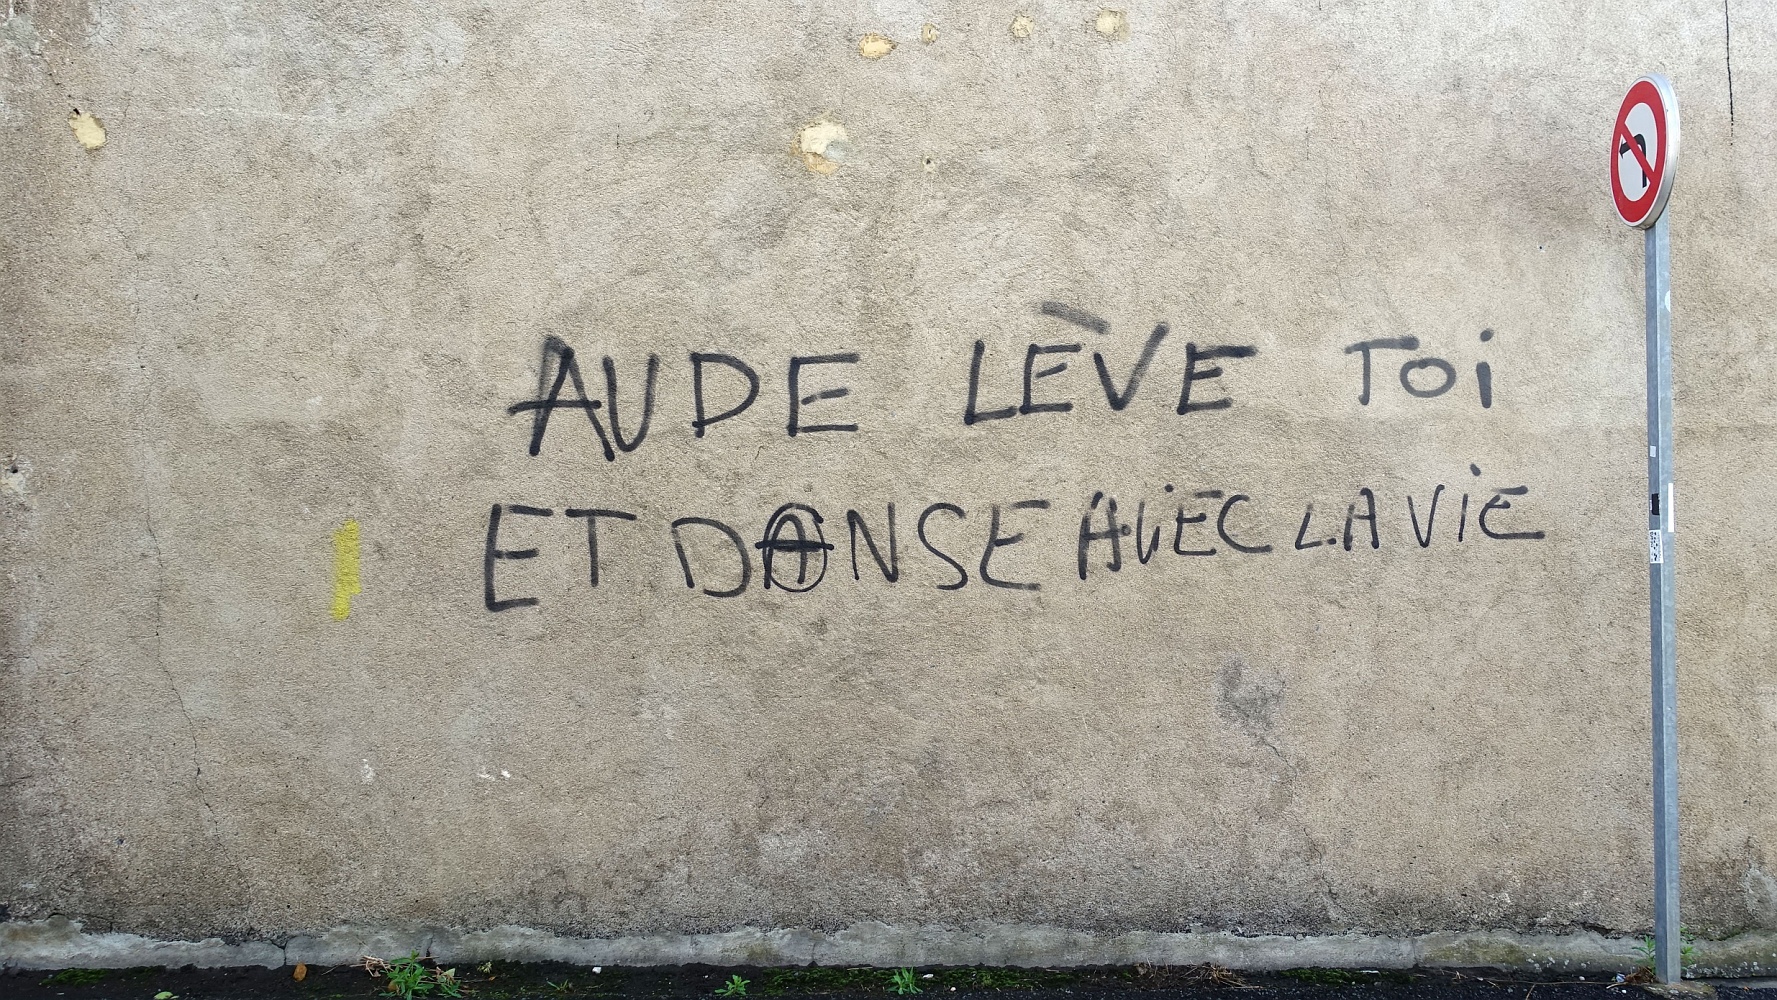 AUDE LÈVE Toi
ET DANSE AVEC LA ViE